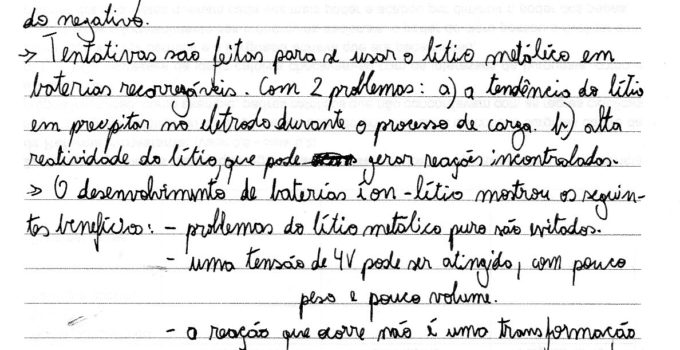 do negativo.
→ Tentativas são feitas para se usar o lítio metálico em
baterias recarregáveis. Com 2 problemas: a) a tendência do lítio
em precipitar no eletrodo durante o processo de carga. b) alta
reatividade do lítio, que pode gerar reações incontroladas.
→ O desenvolvimento de baterias íon-lítio mostrou os seguin-
tes benefícios: - problemas do lítio metálico puro são evitados.
- uma tensão de 4V pode ser atingida, com pouco
peso e pouco volume.
- a reação que ocorre não é uma transformação